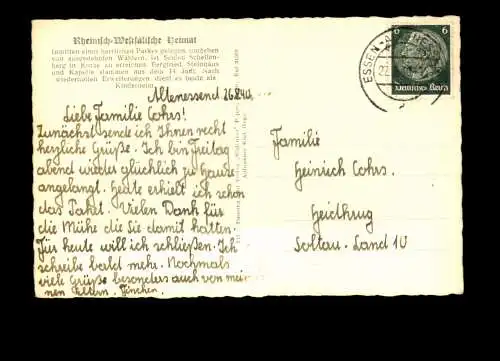 Rheinisch-Westfälische Heimat
Inmitten eines herrlichen Parkes gelegen, umgeben
von ausgedehnten Wäldern, ist Schloß Schellen-
berg in Kürze zu erreichen. Bergfried, Steinhaus
und Kapelle stammen aus dem 14. Jahrh. Nach
wiederholten Erweiterungen dient es heute als
Kinderheim
Altenessen d. 26.8.40.
Liebe Familie Cohrs!
Zunächst sende ich Ihnen recht
herzliche Grüße. Ich bin Freitag
abend wieder glücklich zu Hause
angelangt. Heute erhielt ich schon
das Paket. Vielen Dank für
die Mühe die Sie damit hatten.
Für heute will ich schließen. Ich
schreibe bald mehr. Nochmals
viele Grüße besonders auch von mei-
nen Eltern.
Familie
Heinrich Cohrs.
Heidkrug
Soltau-Land 10
ESSEN-
6
6
Deutsches Reich